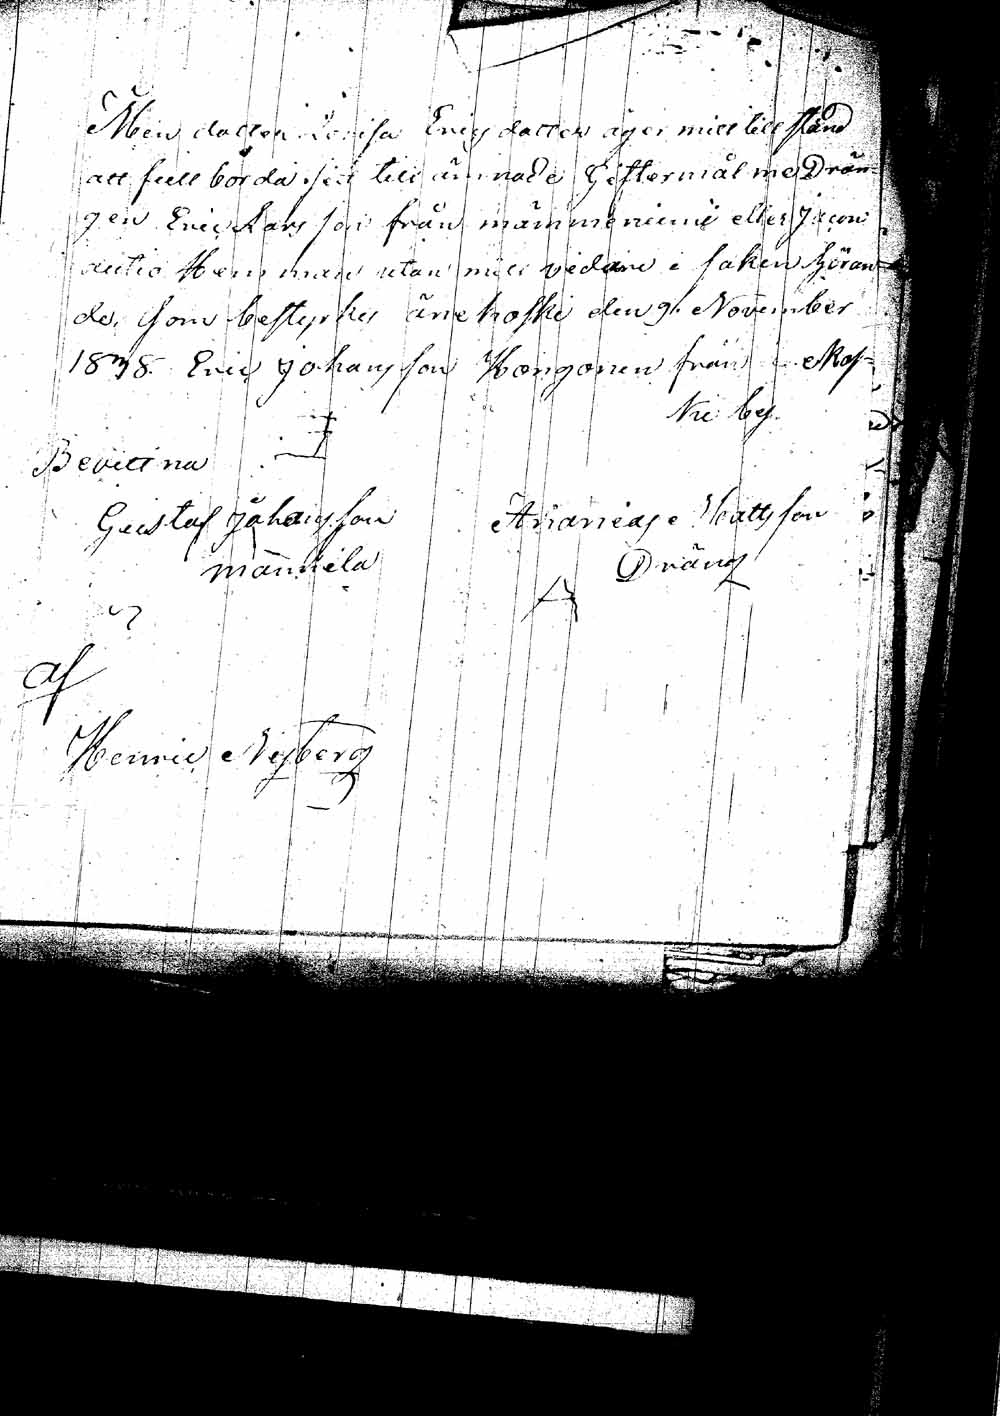 Min dotter Lovisa Ericsdotter äger mitt till stånd
att full börda sitt till ämnade Giftermål med Drän-
gen Eric Larsson från mämmeniemi eller
autio Hemman utan mitt vidare i saken höran-
de, som bestyrkes änehoski den 9. November
1838. Eric Johansson Hongonen från Kos-
ki by.
Bevittna
Gustaf Johansson
mannila
Ananias Mattsson
Dräng
af
Henric Nyberg